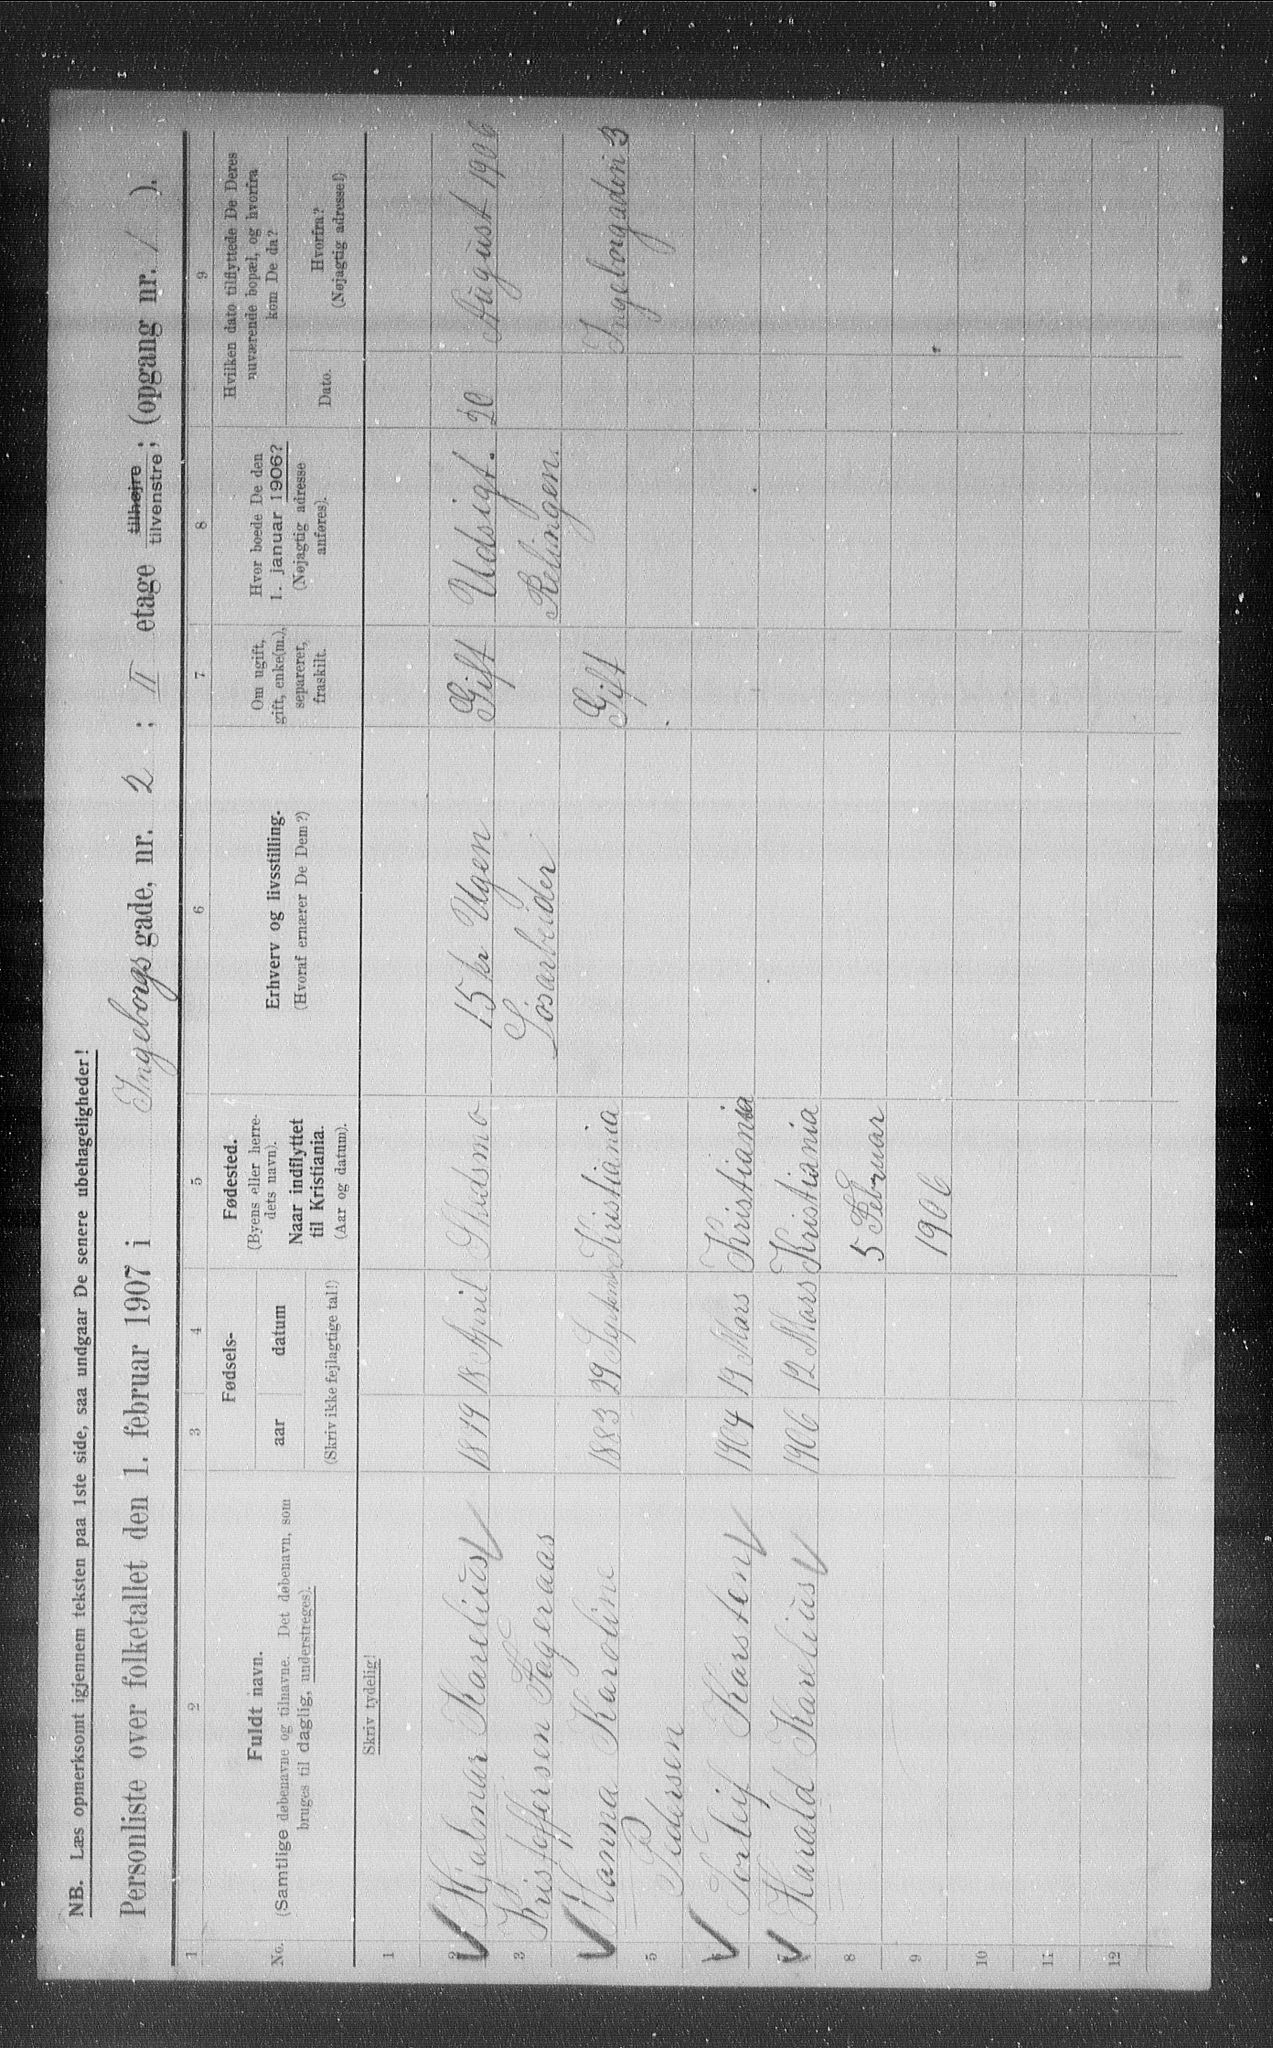 NB. Læs opmerksomt igjennem teksten paa 1ste side, saa undgaar De senere ubehageligheder!
Personliste over folketallet den 1. februar 1907 i Ingeborgs gade, nr. 2 ; II etage tilhøjre tilvenstre; (opgang nr. / ).
1 2 3 4 5 6 7 8 9
No.
Fuldt navn.
(Samtlige døbenavne og tilnavne. Det døbenavn, som
bruges til daglig, understreges).
Fødsels-
aar datum
(Skriv ikke fejlagtige tal!)
Fødested.
(Byens eller herre-
dets navn).
Naar indflyttet
til Kristiania.
(Aar og datum).
Erhverv og livsstilling.
(Hvoraf ernærer De Dem?)
Om ugift,
gift, enke(m.),
separeret,
fraskilt.
Hvor boede De den
1. januar 1906?
(Nøjagtig adresse
anføres).
Hvilken dato tilflyttede De Deres
nuværende bopæl, og hvorfra
kom De da?
Dato.
Hvorfra?
(Nøjagtig adresse!)
Skriv tydelig!
1
2 Hjalmar Karelius 1879 18 April Skedsmo 15 kr Ugen Gift Udsigt. 20 August 1906
3 Kristoffersen Fageraas Løsarbeider Relingen.
Hanna Karoline 1883 29 September Kristiania Gift Ingeborgaden 3
5 Pedersen
Torleif Karsten 1904 19 Mars Kristiania
Harald Karelius 1906 12 Mars Kristiania
8 5 Februar
9 1906
10
11
12